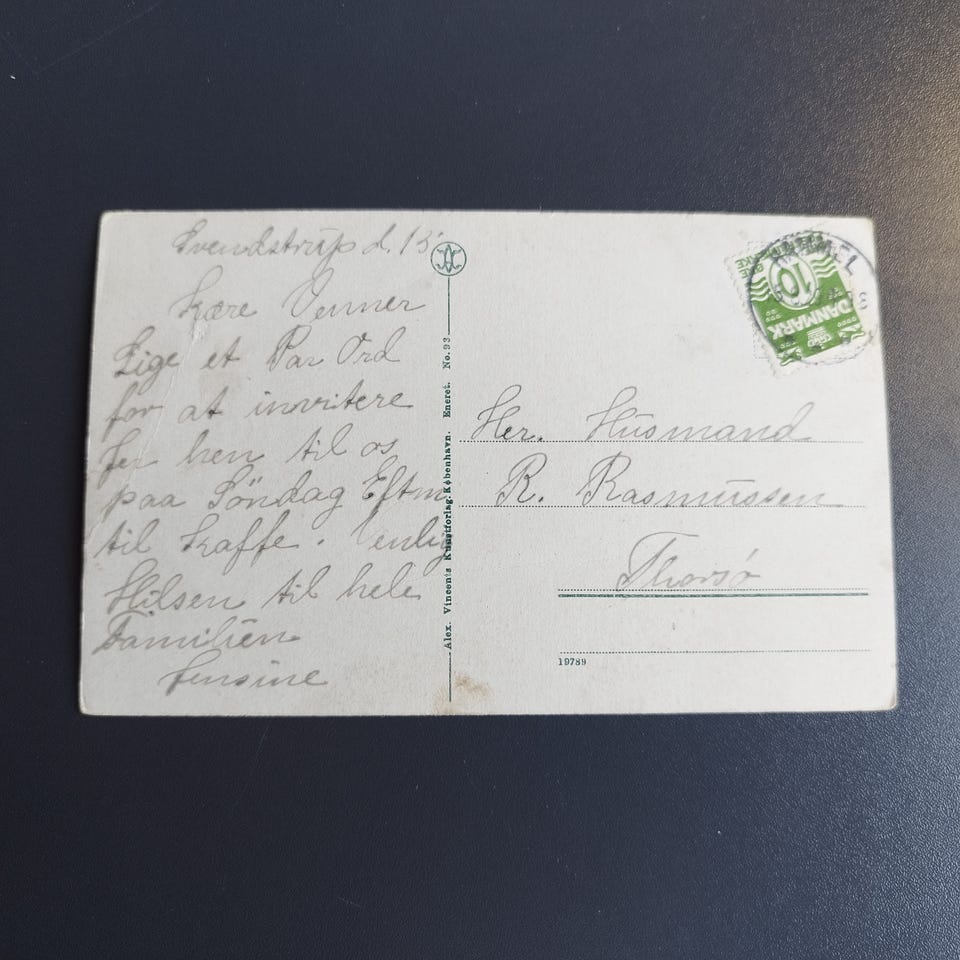 Svendstrup d. 15
Kære Venner
Lige et Par Ord
for at invitere
Jer hen til os
paa Söndag Eftm
til Kaffe. Venlig
Hilsen til hele
Familien
Jensine
Alex. Vincents Kunstforlag. København. Eneret. No. 93
10
DANMARK
Her. Husmand
R. Rasmussen
Thorsø
19789